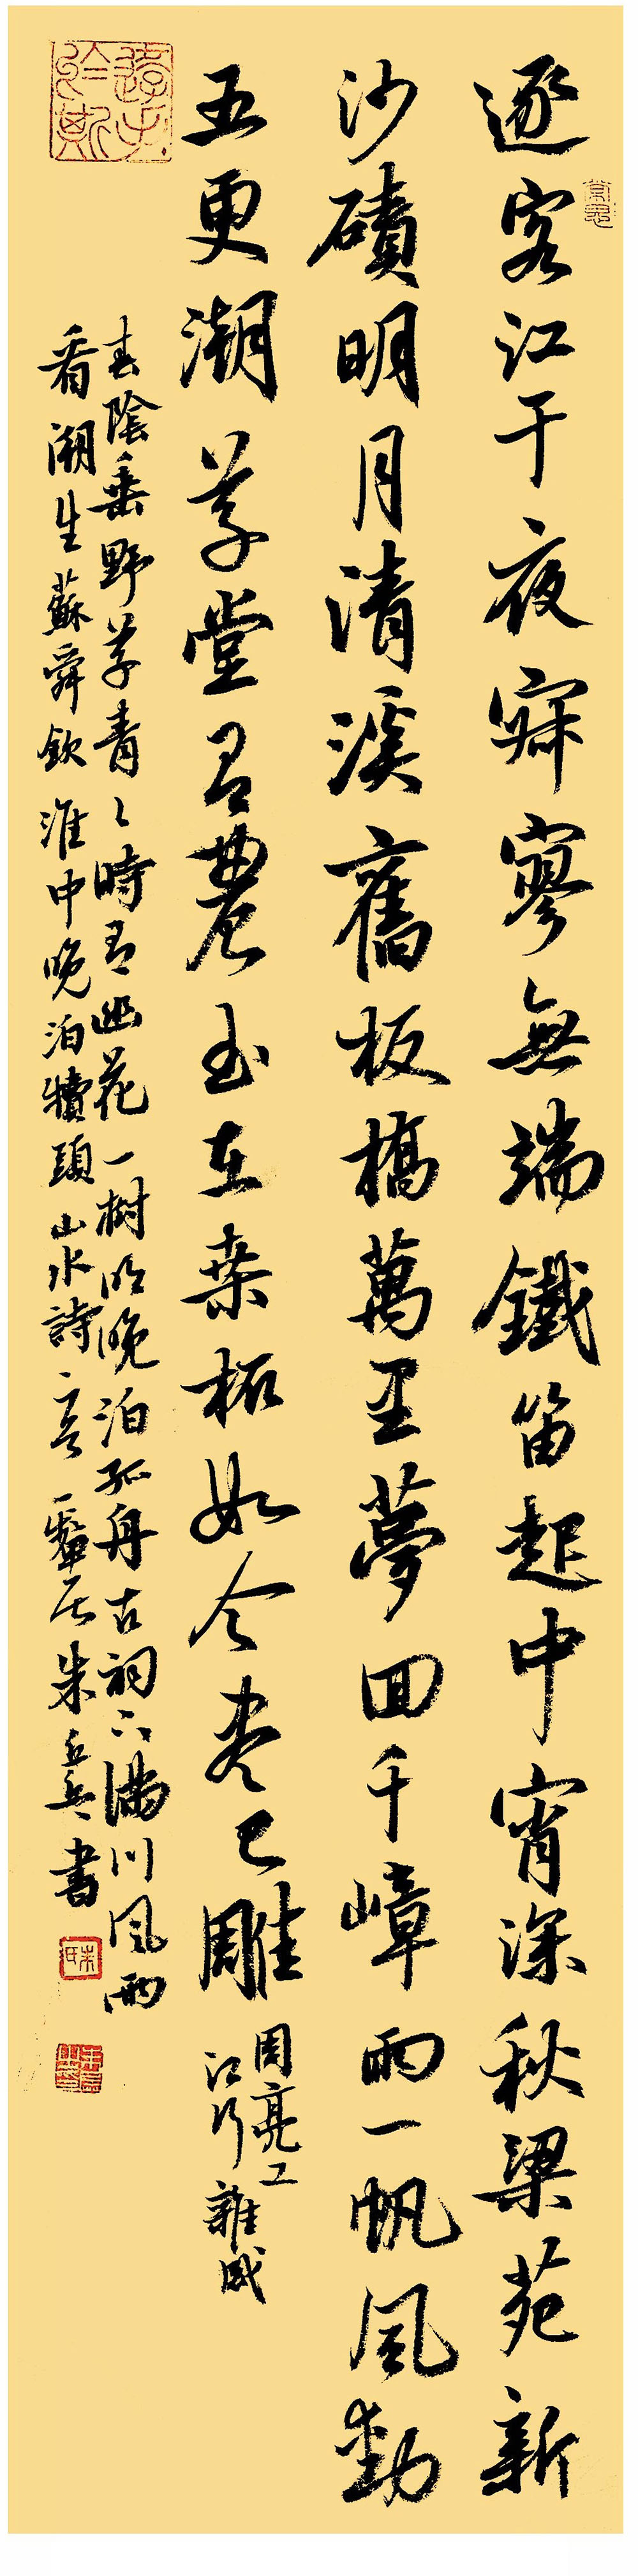 逐客江干夜寂寥無端鐵笛起中宵深秋梁苑新
沙磧明月清溪舊板橋萬里夢回千嶂雨一帆風動
五更潮草堂有農在桑柘如今盡已雕
周亮工
江行雜感
春陰垂野草青々時有幽花一樹明晚泊孤舟古祠下滿川風雨
看潮生蘇舜欽淮中晚泊犢頭山水詩二首居朱書
朱氏